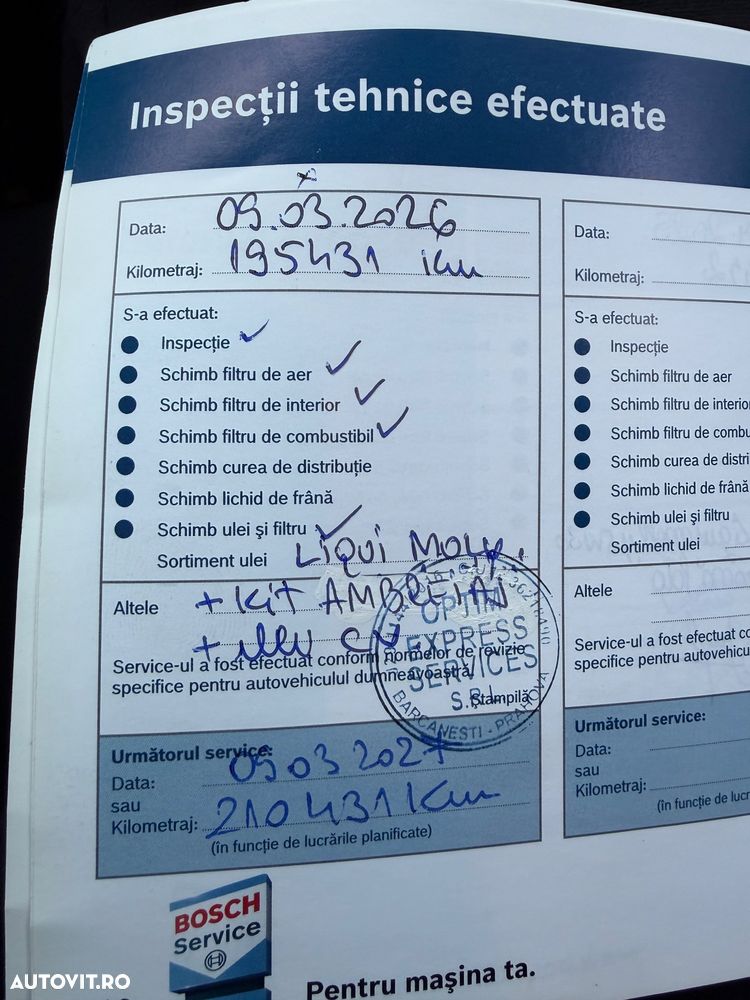 Inspecții tehnice efectuate
Data: 09.03.2026
Kilometraj: 195431 km
S-a efectuat:
Inspecție
Schimb filtru de aer
Schimb filtru de interior
Schimb filtru de combustibil
Schimb curea de distribuție
Schimb lichid de frână
Schimb ulei și filtru
Sortiment ulei LIQUI MOLY.
Altele + Kit AMBREIAJ
+ ulei CV
Service-ul a fost efectuat conform normelor de revizie
specifice pentru autovehiculul dumneavoastră
OPTIM
EXPRESS
SERVICES
S.R.L.
BARCANESTI - PRAHOVA
Ștampilă
Următorul service:
Data: 09 03 2027
sau
Kilometraj: 210431 Km
(în funcție de lucrările planificate)
Data:
Kilometraj:
S-a efectuat:
Inspecție
Schimb filtru de aer
Schimb filtru de interior
Schimb filtru de combu
Schimb curea de distri
Schimb lichid de frână
Schimb ulei și filtru
Sortiment ulei
Altele
Service-ul a fost efectuat co
specifice pentru autovehicul
Următorul service:
Data:
sau
Kilometraj:
(în funcție de lucr
BOSCH
Service
Pentru mașina ta.
AUTOVIT.RO